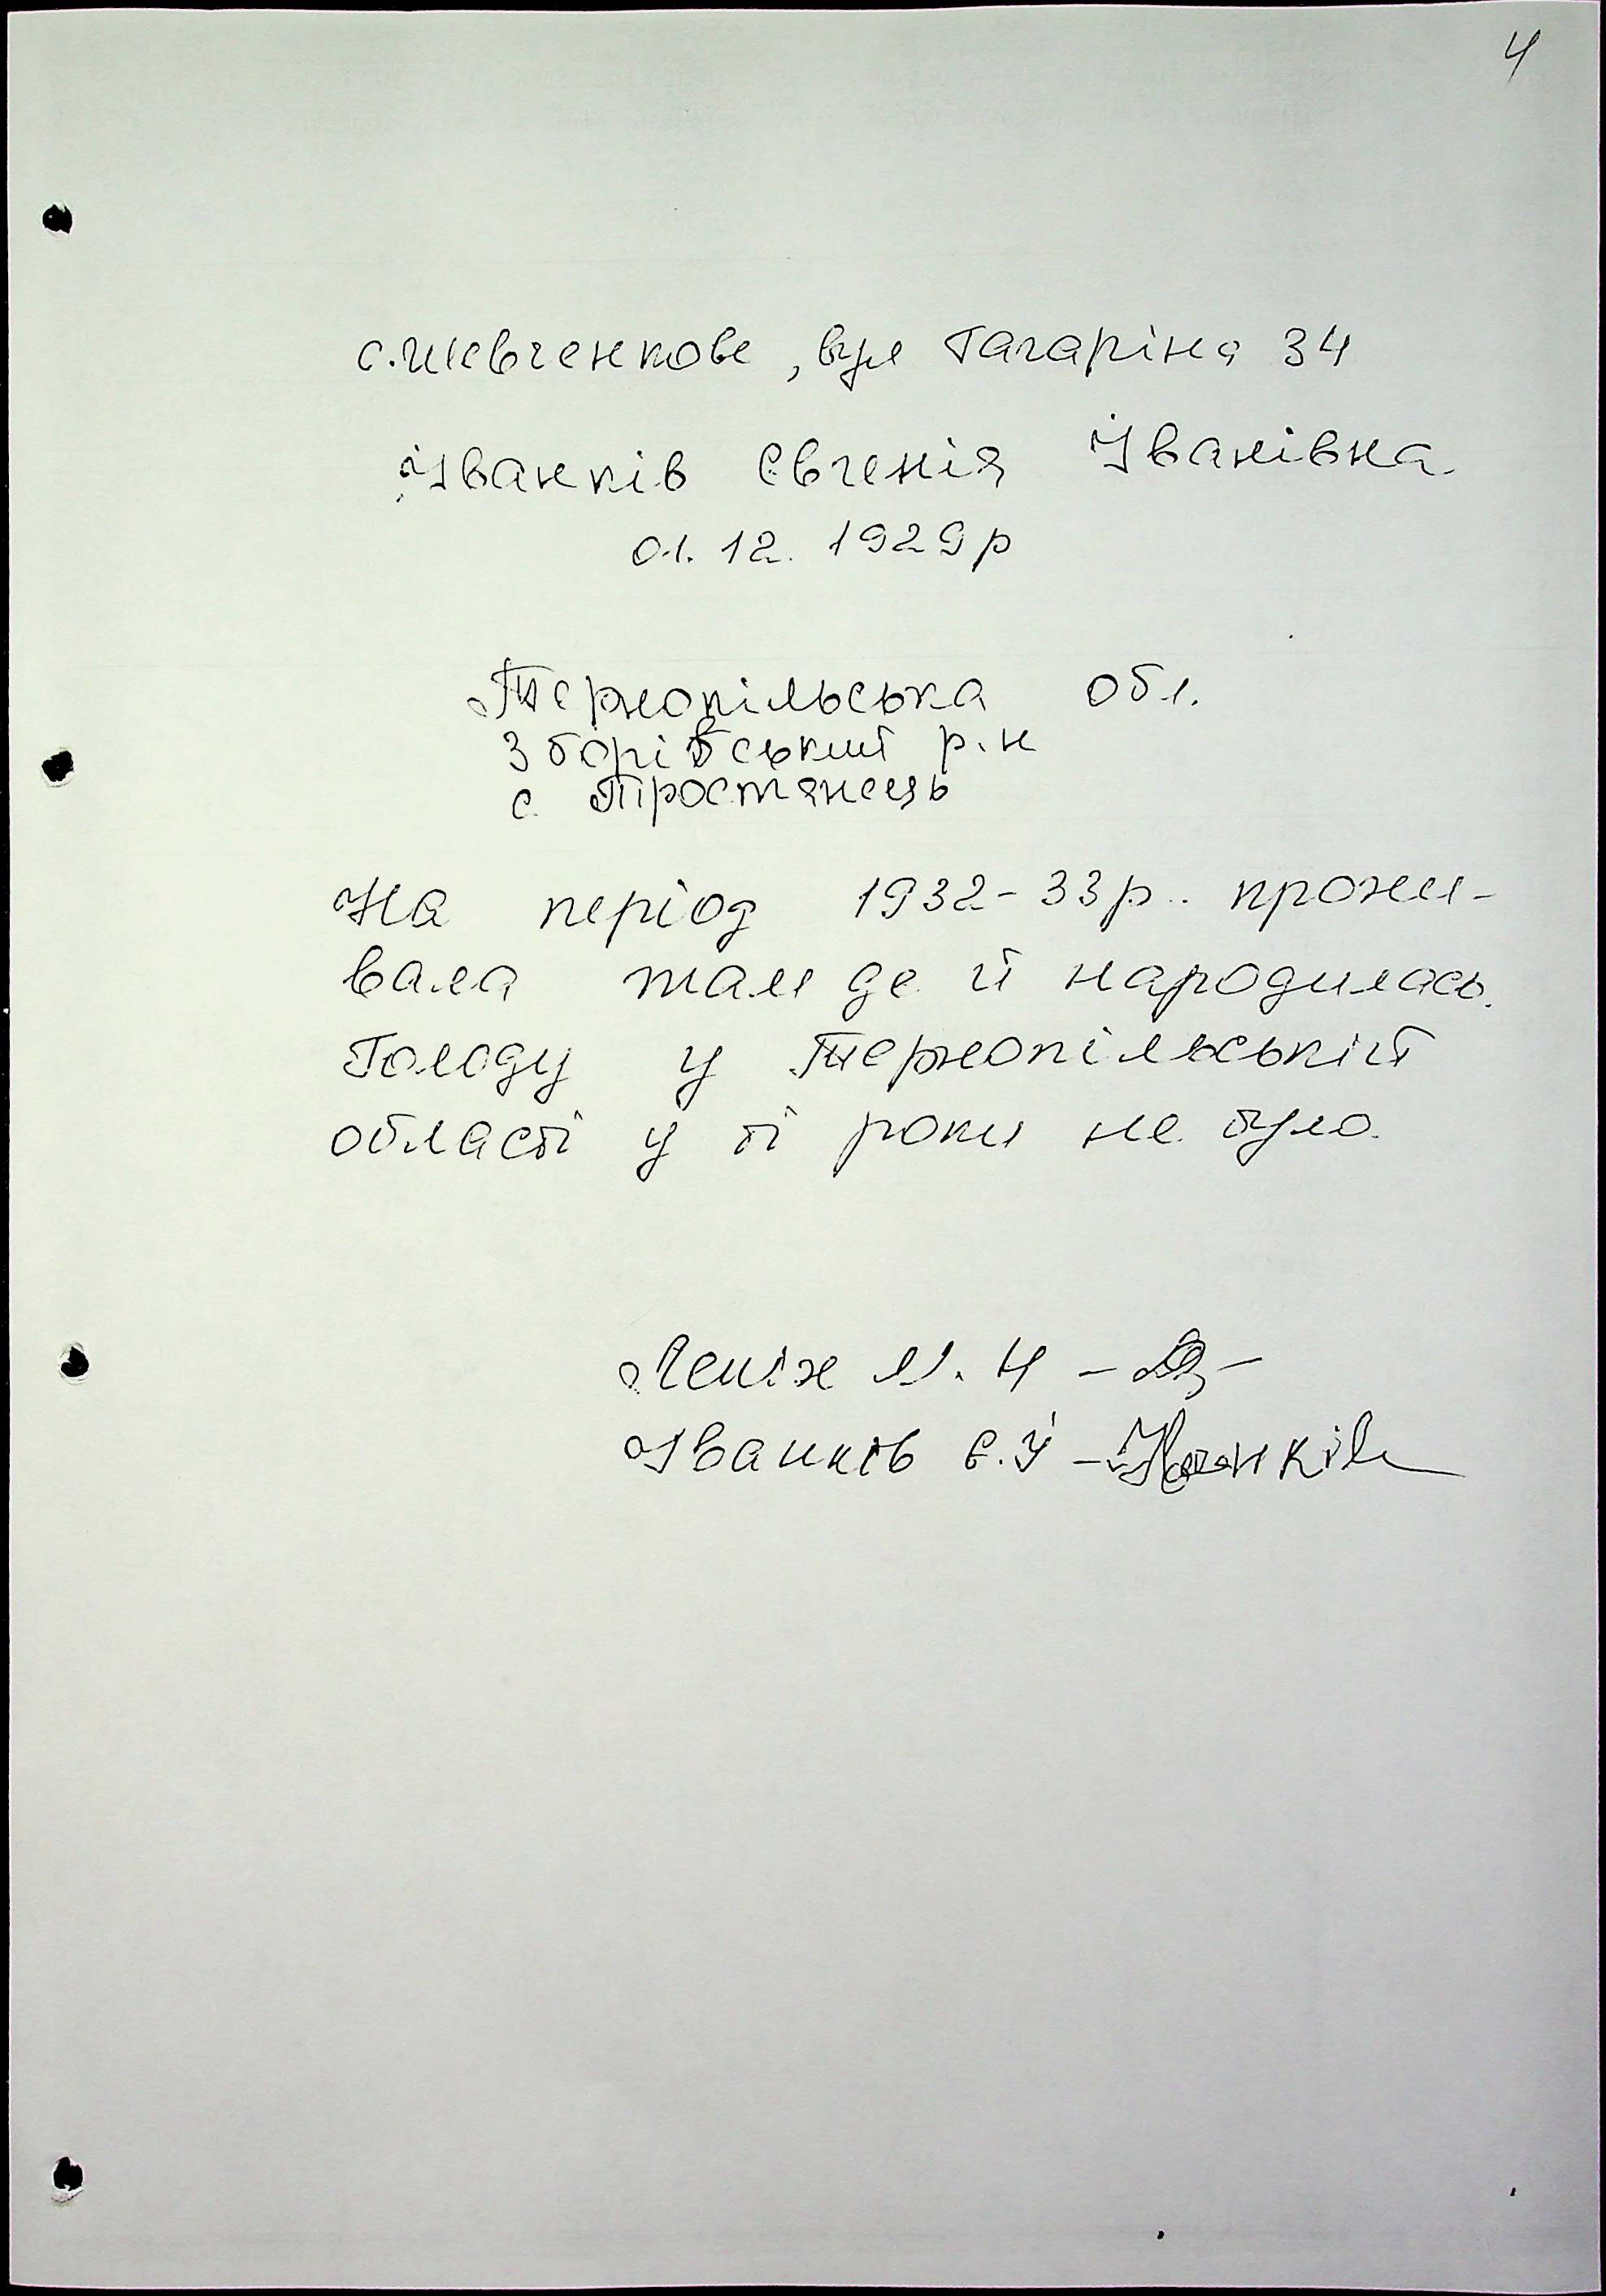 4
с. Шевченкове, вул Гагаріна 34
Іванків Євгенія Іванівна.
01. 12. 1929р
Тернопільська обл.
Зборівський р.н
с. Тростянець
На період 1932-33р.. прожи-
вала там де й народилась.
Голоду у Тернопільській
області у ті роки не було.
М. Н
Іванків Є.І - Іванків